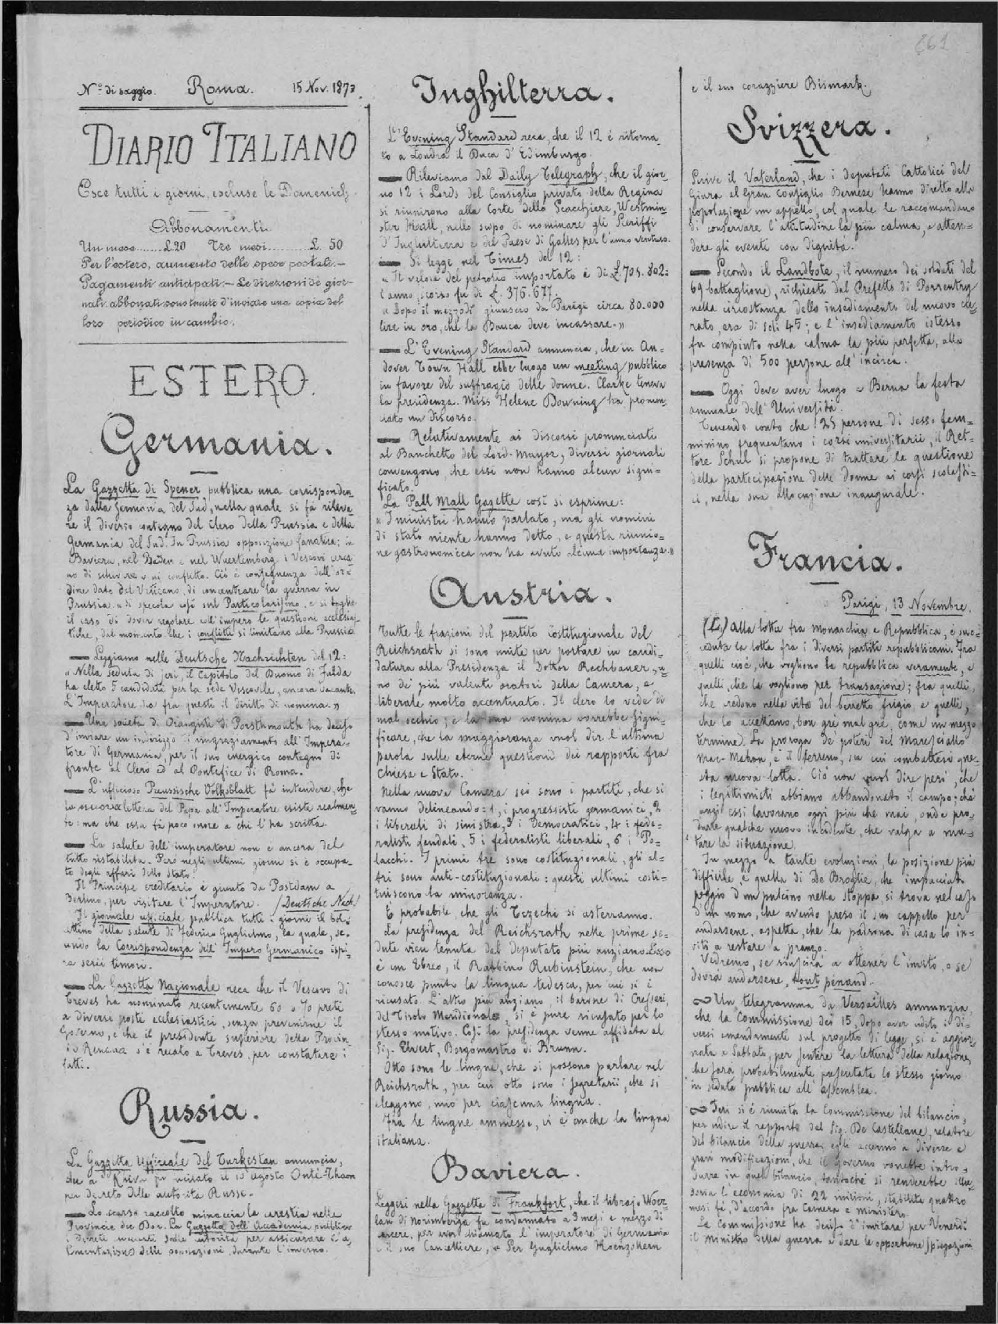 261
Nº di saggio. Roma. 15 Nov. 1873.
DIARIO ITALIANO
Esce tutti i giorni, escluse le Domeniche
Abbonamenti
Un mese......£.20 Tre mesi......£. 50
Per l'estero, aumento delle spese postali.—
Pagamenti anticipati.— Le direzioni de' gior-
nali abbonati sono tenute d'inviare una copia del
loro periodico in cambio.
ESTERO.
Germania.
La Gazzetta di Spener pubblica una corrisponden
za dalla Germania del Sud, nella quale si fa rileva
re il diverso contegno del clero della Prussia e della
Germania del Sud. In Prussia opposizione fanatica; in
Baviera, nel Baden e nel Wuertemberg i Vescovi cerca
no di schivare i conflitti. Ciò è conseguenza dell'or
dine dato dal Vaticano, di concentrare la guerra in
Prussia. Si specola così sul Particolarismo, e si toglie
il caso di dover regolare coll'impero le questioni ecclesias
tiche, dal momento che i conflitti si limitano alla Prussia
— Leggiamo nelle Deutsche Nachrichten del 12:
«Nella seduta di jeri, il Capitolo del Duomo di Fulda
ha eletto 5 candidati per la sede Vescovile, ancora vacante.
L'Imperatore ha fra questi il diritto di nomina.»
— Una società di Orangisti di Portsmouth ha deciso
d'inviare un indirizzo di ringraziamento all'Impera-
tore di Germania, per il suo energico contegno di
fronte al Clero ed al Pontefice di Roma.
— L'ufficioso Preussische Volksblatt fa intendere, che
la seconda lettera del Papa all'Imperatore esiste realmen
te: ma che essa fa poco onore a chi l'ha scritta.
— La salute dell'imperatore non è ancora del
tutto ristabilita. Però negli ultimi giorni si è occupa-
to degli affari dello Stato.
Il Principe ereditario è giunto da Postdam a
Berlino, per visitare l'Imperatore. (Deutsche Nach.)
Il giornale ufficiale pubblica tutti i giorni il bol-
lettino della salute di Federico Guglielmo, la quale, se-
condo la Corrispondenza dell'Impero Germanico ispi-
ra serii timori.
— La Gazzetta Nazionale reca che il Vescovo di
Treves ha nominato recentemente 60 o 70 preti
a diversi posti ecclesiastici, senza prevenirne il
Governo, e che il presidente superiore della Provin-
cia Renana s'è recato a Treves, per constatare i
fatti.
Russia.
La Gazzetta Ufficiale del Turkestan annuncia,
che a Kiva fu
per decreto delle autorità Russe.
— Lo scarso raccolto minaccia la carestia nelle
Provincie del Don. La Gazzetta dell'Accademia pubblica
i decreti emanati dalle autorità per assicurare l'a-
limentazione delle popolazioni, durante l'inverno.
Inghilterra.
L'Evening Standard reca, che il 12 è ritorna-
to a Londra il Duca d'Edimburgo.
— Rileviamo dal Daily Telegraph, che il gior-
no 12 i Lords del Consiglio privato della Regina
si riunirono alla Corte dello Scacchiere, Westmin-
ster Hall, nello scopo di nominare gli Sceriffi
d'Inghilterra e del Paese di Galles per l'anno venturo.
— Si legge nel Times del 12:
«Il valore del petrolio importato è di £.701.802:
l'anno scorso fu di £. 376.677.
«Dopo il mezzodì giunsero da Parigi circa 80.000
lire in oro, che la Banca deve incassare.»
— L'Evening Standard annuncia, che in An-
dover Town Hall ebbe luogo un meeting pubblico
in favore del suffragio delle donne. Clarke teneva
la presidenza. Miss Helene Downing ha pronun-
ciato un discorso.
— Relativamente ai discorsi pronunciati
al Banchetto del Lord-Mayor, diversi giornali
convengono che essi non hanno alcun signi-
ficato.
La Pall Mall Gazette così si esprime:
«I ministri hanno parlato, ma gli uomini
di stato niente hanno detto, e questa riunio-
ne gastronomica non ha avuto alcuna importanza.»
Austria.
Tutte le frazioni del partito costituzionale del
Reichsrath si sono unite per portare in candi-
datura alla Presidenza il Dottor Rechbauer, u-
no de' più valenti oratori della Camera, e
liberale molto accentuato. Il clero lo vede di
mal occhio; e la sua nomina vorrebbe signi-
ficare, che la maggioranza vuol dir l'ultima
parola sulle eterne questioni dei rapporti fra
Chiesa e Stato.
Nella nuova Camera sei sono i partiti, che si
vanno delineando: 1, i progressisti germanici, 2
i liberali di sinistra, 3 i Democratici, 4 i fede-
ralisti feudali, 5 i federalisti liberali, 6 i Po-
lacchi. I primi tre sono costituzionali, gli al-
tri sono anti-costituzionali: questi ultimi costi-
tuiscono la minoranza.
È probabile che gli Tczechi si asterranno.
La presidenza del Reichsrath nelle prime se-
dute vien tenuta dal deputato più anziano. Esso
è un Ebreo, il Rabbino Rubinstein, che non
conosce punto la lingua tedesca, per cui si è
ricusato. L'altro più anziano, il barone di
del Tirolo Meridionale, si è pure rifiutato per lo
stesso motivo. Così la presidenza venne affidata al
Sig. Elvert, Borgomastro di Brunn.
Otto sono le lingue, che si possono parlare nel
Reichsrath, per cui otto sono i segretarii, che si
eleggono, uno per ciascuna lingua.
Fra le lingue ammesse, vi è anche la lingua
italiana.
Baviera
Leggesi nella Gazzetta di Frankfort, che il libraio Wör-
lein di Norimberga fu condannato a 3 mesi e mezzo di
carcere, per aver chiamato l'imperatore di Germania
e il suo Cancelliere, « Per Guglielmo Hoenzollern
e il suo corazziere Bismark.
Svizzera.
Scrive il Vaterland, che i deputati Cattolici del
Giura al Gran Consiglio Bernese hanno diretto alla
popolazione un appello, col quale le raccomandano
di conservare l'attitudine la più calma, e atten-
dere gli eventi con dignità.
— Secondo il Landbote, il numero dei soldati del
69 battaglione, richiesti dal Prefetto di Porrentruy
nella circostanza dello insediamento del nuovo cu-
rato, era di soli 45; e l'insediamento istesso
fu compiuto nella calma la più perfetta, alla
presenza di 500 persone all'incirca.
— Oggi deve aver luogo a Berna la festa
annuale dell'Università.
Tenendo conto che 25 persone di sesso fem-
minino frequentano i corsi universitarii, il Ret-
tore Schul si propone di trattare la questione
della participazione delle donne ai corsi scolasti-
ci, nella sua allocuzione inaugurale.
Francia.
Parigi, 13 Novembre.
Alla lotta fra monarchia e Repubblica, è suc-
ceduta la lotta fra i diversi partiti repubblicani. Fra
quelli cioè, che vogliono la repubblica veramente, e
quelli, che la vogliono per transazione; fra quelli,
che credono nella virtù del berretto frigio e quelli,
che lo accettano, bon gré mal gré, come un mezzo
termine. La proroga de' poteri del Maresciallo
Mac-Mahon, è il terreno, su cui combattesi que-
sta nuova lotta. Ciò non vuol dire però, che
i legitimisti abbiano abbandonato il campo; chè
anzi essi lavorano oggi più che mai, onde pro-
durre qualche nuovo incidente, che valga a mu-
tare la situazione.
In mezzo a tante evoluzioni, la posizione più
difficile è quella di De Broglie, che impacciato
peggio d'un pulcino nella stoppa, si trova nel caso
d'un uomo, che avendo preso il suo cappello per
andarsene, aspetta che la patrona di casa lo in-
viti a restare a pranzo.
Vedremo, se riuscirà a ottener l'invito, o se
dovrà andarsene, tout penaud.
— Un telegramma da Versailles annunzia,
che la Commissione dei 15, dopo aver udito i di-
versi emendamenti sul progetto di legge, si è aggior-
nata a Sabbato, per sentire la lettura della relazione,
che sarà probabilmente presentata lo stesso giorno
in seduta pubblica all'assemblea.
— Jeri si è riunita la Commissione del bilancio,
per udire il rapporto del Sig. De Castellane, relatore
del bilancio della guerra. Egli accennò a diverse e
gravi modificazioni, che il governo vorrebbe intro-
durre in quel bilancio, tantochè si renderebbe illu-
soria l'economia di 22 milioni, stabilita quattro
mesi fa, d'accordo fra Camera e ministero.
La Commissione ha deciso d'invitare per Venerdì
il Ministro della guerra a dare le opportune spiegazioni